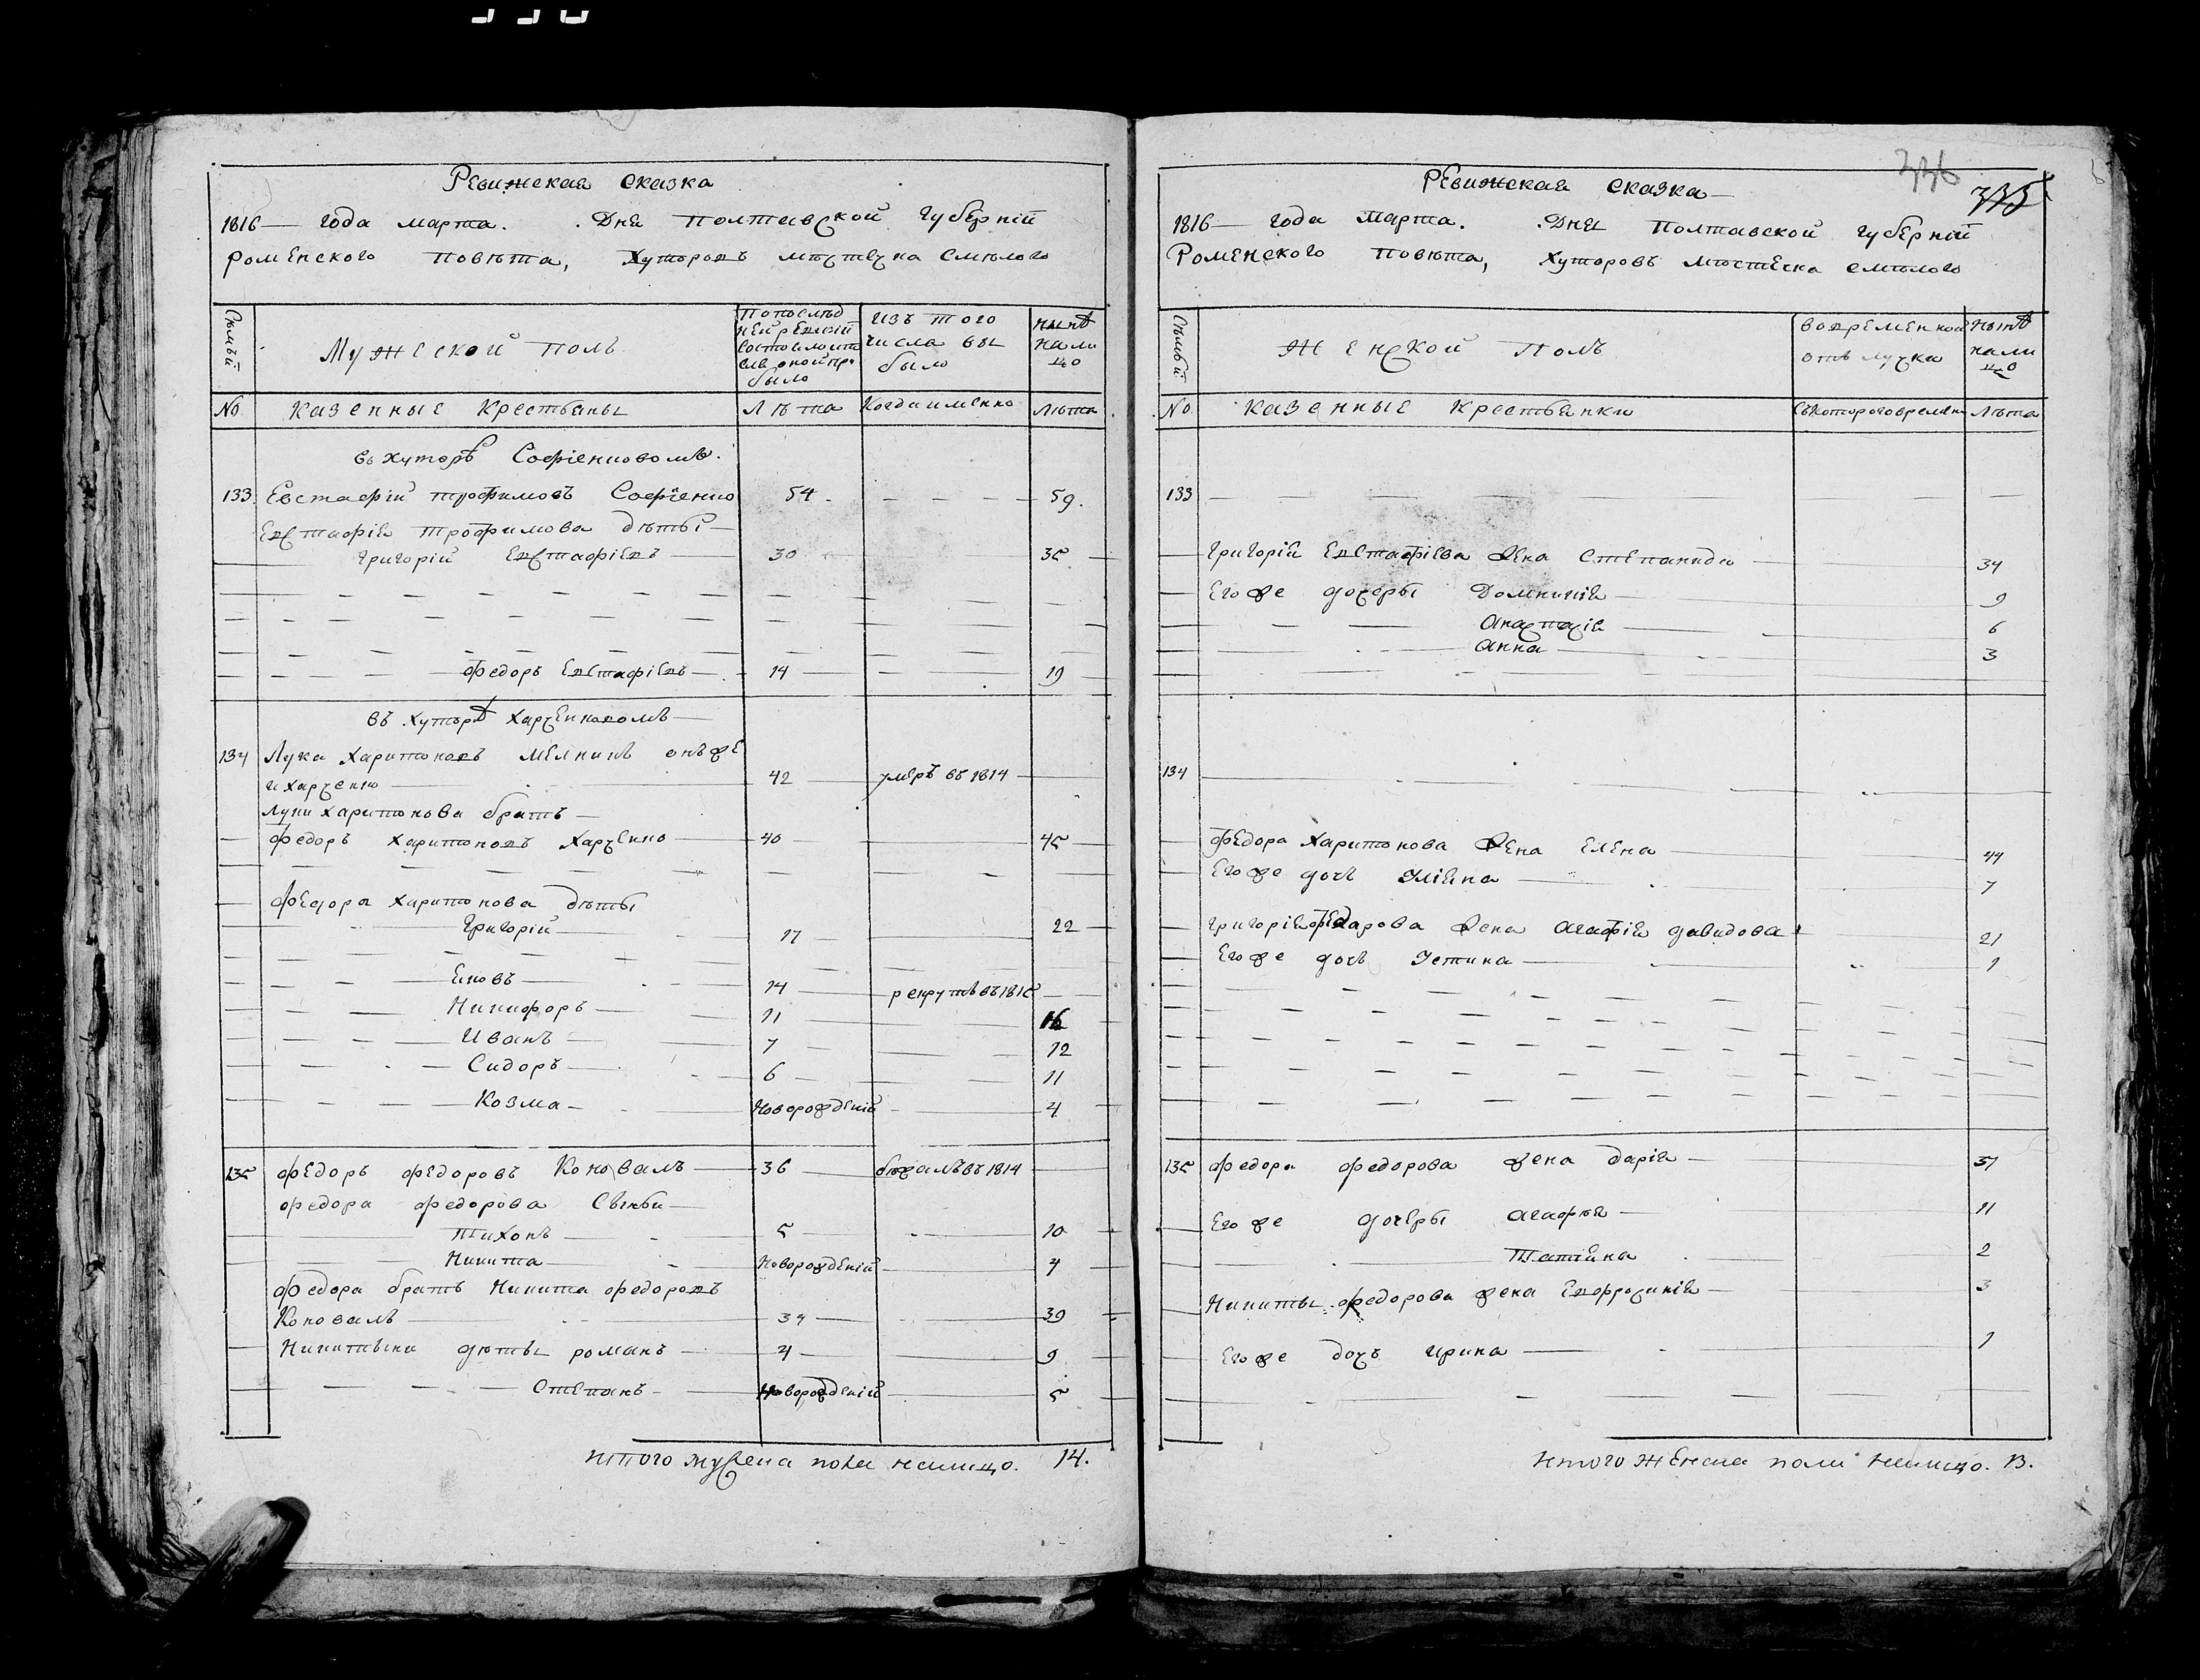 Ревижская сказка
1816 — года марта. Дня Полтавской губерній
Роменского повѣта, Хуторовъ мѣстечка Смѣлого
Семьи
Мужеской полъ
По послѣд
ней ревизіи
состояло и по
слѣ оной при
было
изъ того
числа вы
было
нынѣ
нали
цо
№
Казенные Крестьяны
Лѣта
Когда именно
Лѣта
въ хуторѣ Софіенковомъ.
133. Евстафій трофимовъ Софіенко 54. — — — — 59.
Евстафія трофимова дѣты —
Григорій Евстафіевъ — 30 35
Федоръ Евстафіевъ — 14 — 19
въ хуторѣ Харченковомъ —
134 Лука Харитоновъ Мелникъ онъ же
и Харченко — 42 — умеръ въ 1814 —
Луки Харитонова братъ —
Федоръ Харитоновъ Харченко — 40 — 45
Федора Харитонова дѣты
Григорій — 17 — 22
Яковъ — 14 — рекрутъ въ 1815
Никифоръ — 11 16
Иванъ — 7 — 12
Сидоръ — 6 — 11
Козма — Новорожденій — 4
135 Федоръ Федоровъ Коновалъ — 36 — бѣжалъ въ 1814
Федора Федорова Сыны —
Тихонъ — 5 — 10
Никита — Новорожденій — 4
Федора братъ Никита Федоровъ
Коновалъ — 34 — 39
Никитины дѣты романъ — 4 — 9
Степанъ — Новорожденій — 5
Итого мужеска пола налицо. 14.
336
335
Ревижская сказка —
1816 — года Марта. Дня Полтавской губерній
Роменского повѣта, хуторовъ мѣстечка смѣлого
Семьи
Женской Полъ
во временной
отлучка
Нынѣ
нали
цо
№
Казенные Крестьянки
Съ которого времени
Лѣта
133 — — — — — —
Григорія Евстафіева жена Степанида — 34
Его же дочеры Домникія — 9
Анастасія — 6
Анна — 3
134
Федора Харитонова жена Елена — 44
Его же дочь Уліяна — 7
Григорія Федарова жена Агафія давидова 21
Его же дочь Устина — 1
135 Федора Федорова жена дарія — 37
Его же дочеры Агафия — 11
Татіяна 2
Никиты Федорова жена Евфросинія — 3
Его же дочъ Ирина — 1
Итого женска пола налицо. 13.